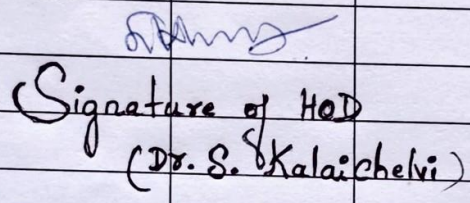 Signature of HOD
(Dr. S. Kalaichelvi)